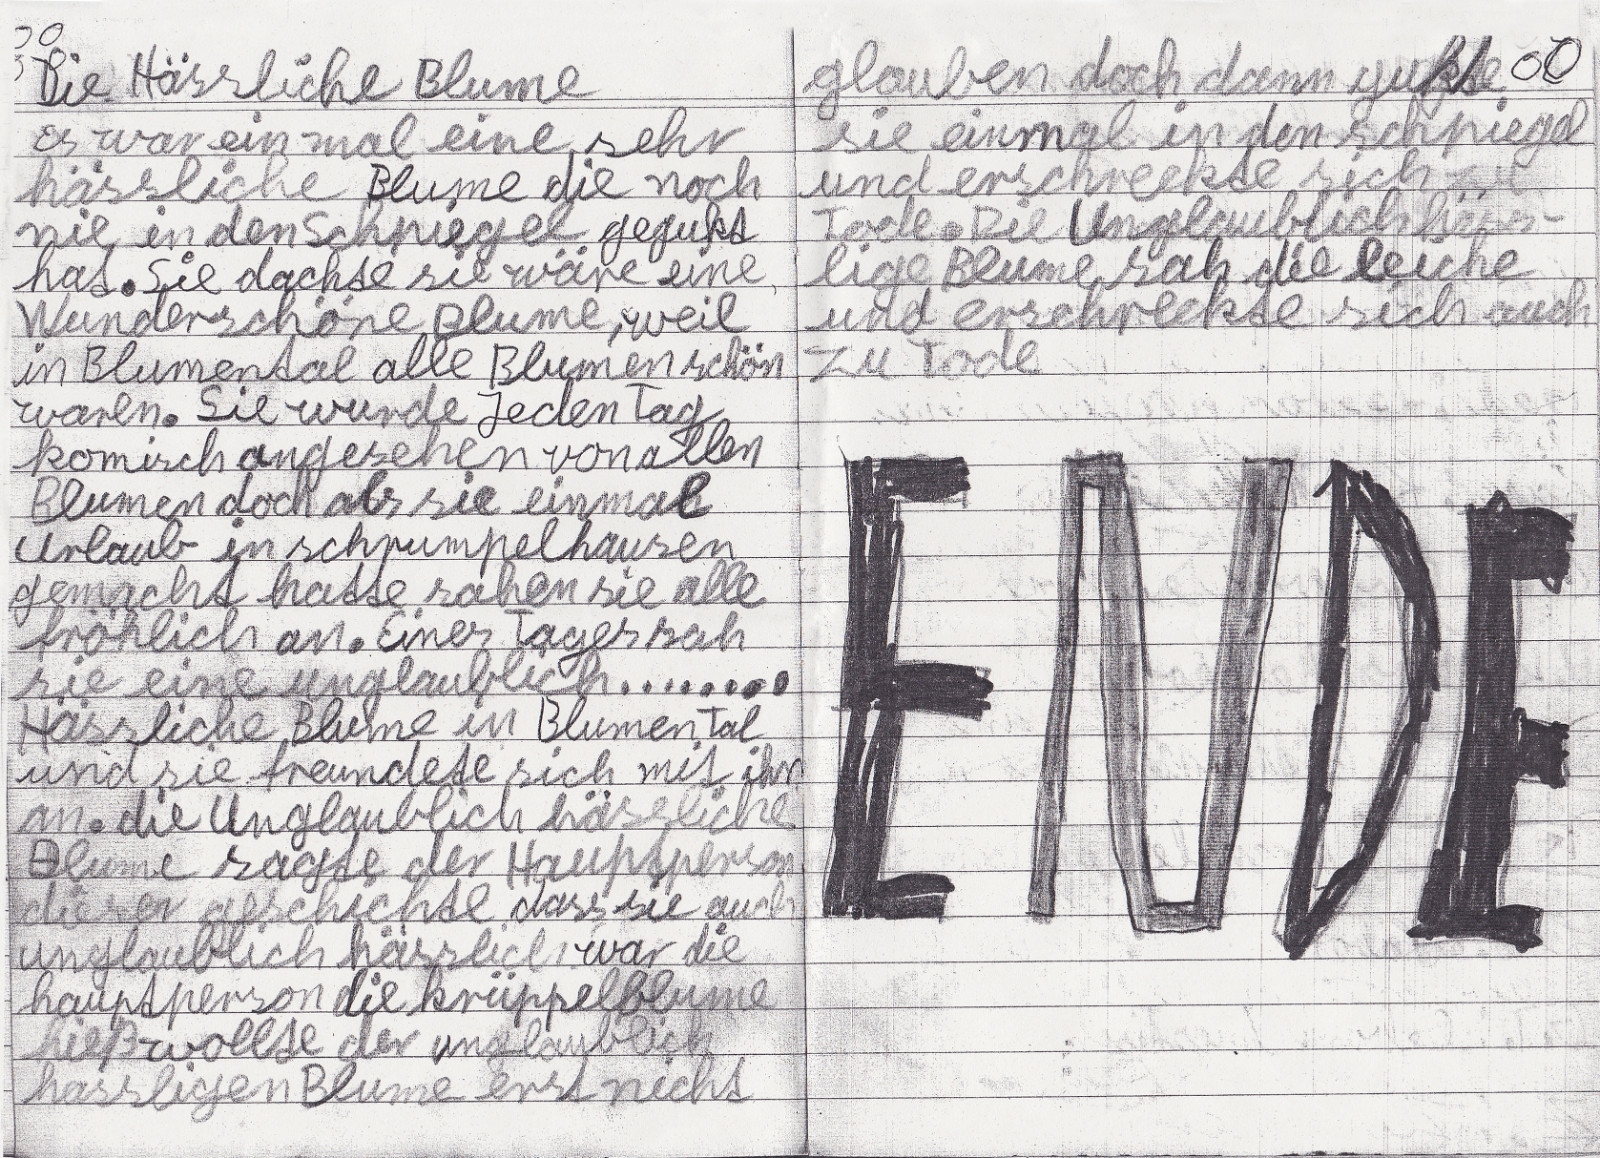 Die Hässliche Blume
Es war ein mal eine sehr
hässliche Blume die noch
nie in den Schpiegel gegukt
hat. Sie dachte sie wäre eine
Wunderschöne Blume, weil
in Blumental alle Blumen schön
waren. Sie wurde Jeden Tag
komisch angesehen von allen
Blumen doch als sie einmal
Urlaub in schrumpelhausen
gemacht hatte sahen sie alle
fröhlich an. Eines Tages sah
sie eine unglaublich........
Hässliche Blume in BlumenTal
und sie freundete sich mit ihr
an. die Unglaublich hässliche
Blume sagte der Hauptperson
dieser geschichte dass sie auch
unglaublich hässlich war die
hauptperson die krüppelblume
hieß wollte der unglaublich
hässligen Blume erst nicht
glauben doch dann gukte
sie einmal in den schpiegel
und erschreckte sich zu
Tode. Die Unglaublich häss-
lige Blume sah die leiche
und erschreckte sich auch
zu Tode
ENDE